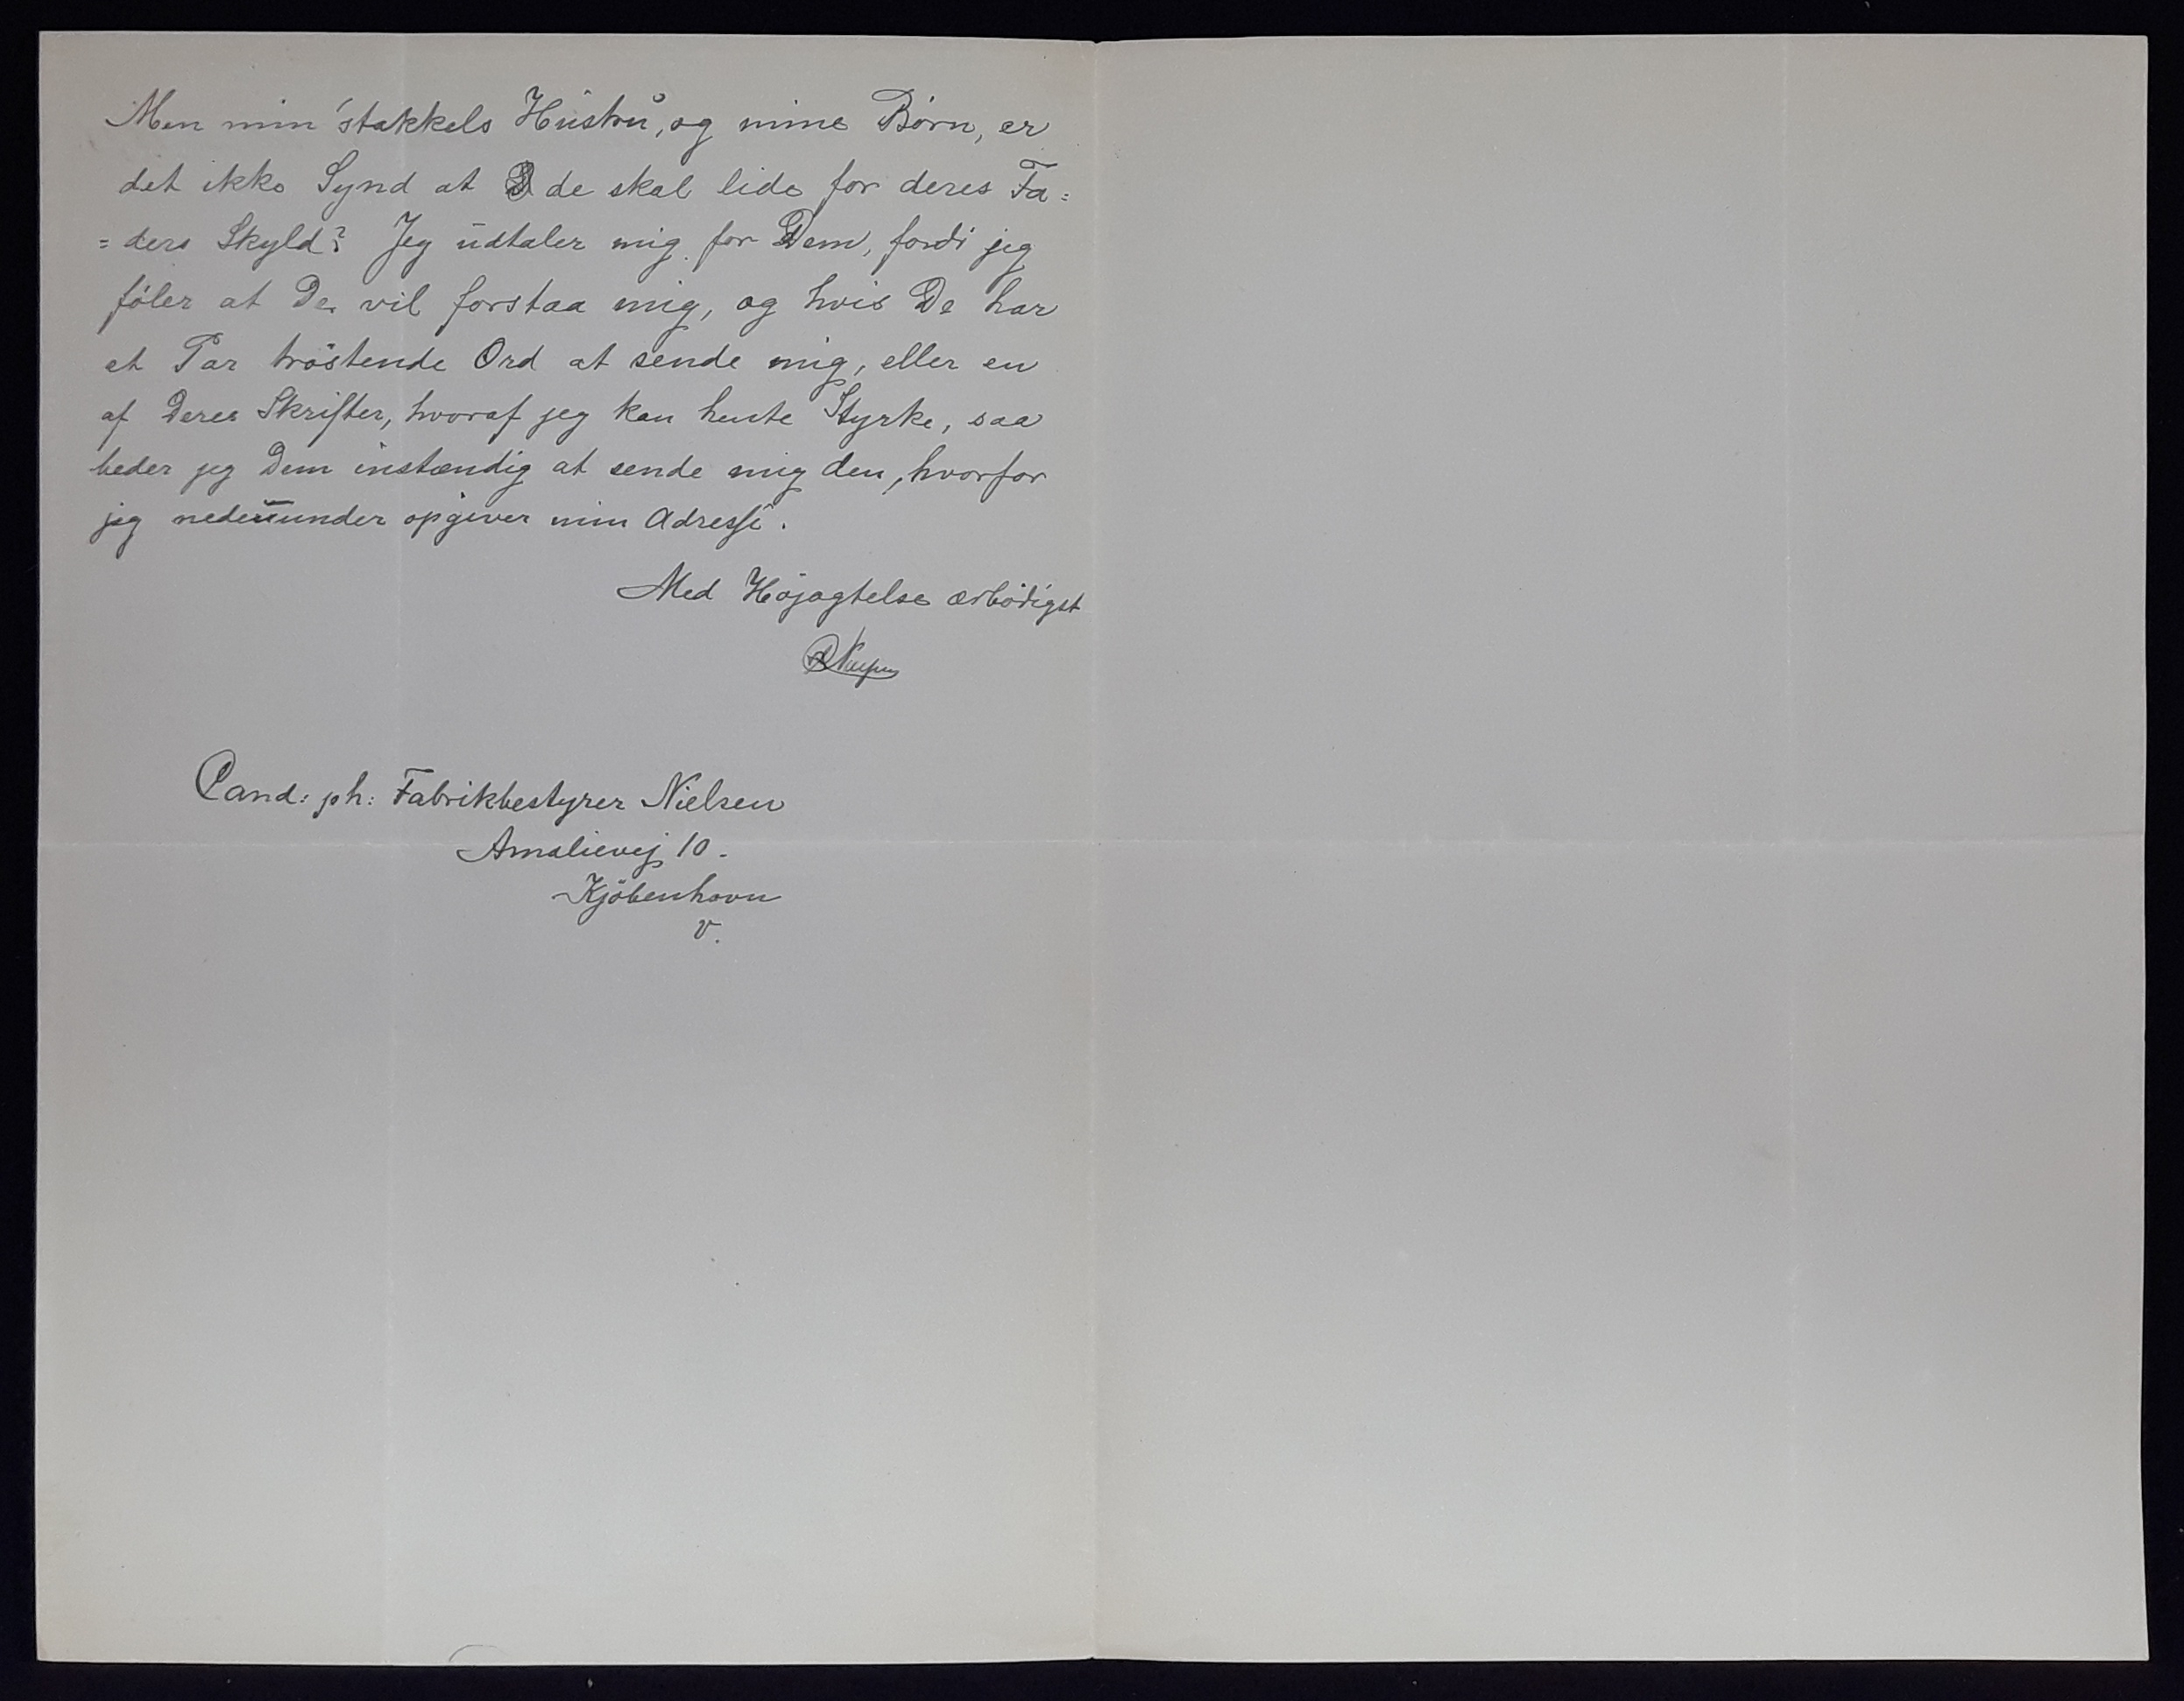 Men min stakkels Hustru, og mine Børn, er
det ikke Synd at de skal lide for deres Fa=
=ders Skyld? Jeg udtaler mig for Dem, fordi jeg
føler at De vil forstaa mig, og hvis De har
et Par trøstende Ord at sende mig, eller en
af Deres Skrifter, hvoraf jeg kan hente Styrke, saa
beder jeg Dem instændig at sende mig den, hvorfor
jeg nedenunder opgiver min Adresse.
Med Højagtelse ærbødigst
Cand: ph: Fabrikbestyrer Nielsen
Amalievej 10.
Kjøbenhavn
V.